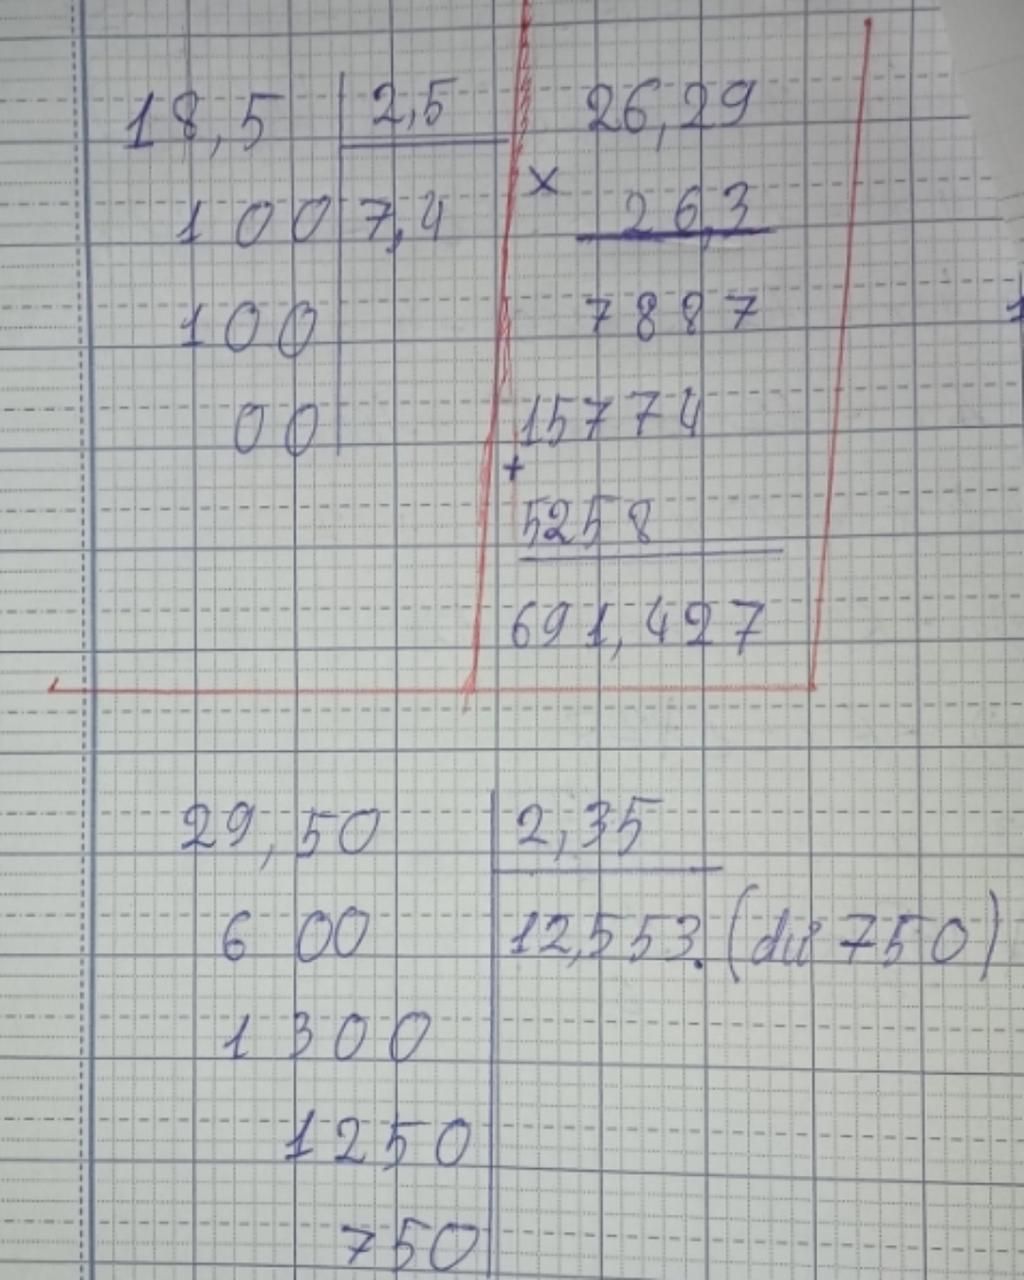 18,5 2,5
100 7,4
100
00
26,29
×
26,3
7887
15774
+
5258
691,427
29,50 2,35
6 00 12,553. (dư 750)
1 300
1250
750
1